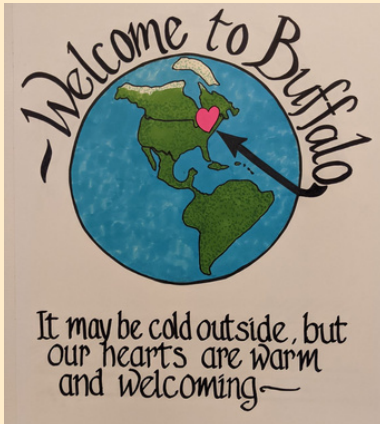 ~Welcome to Buffalo
It may be cold outside, but
our hearts are warm
and welcoming~